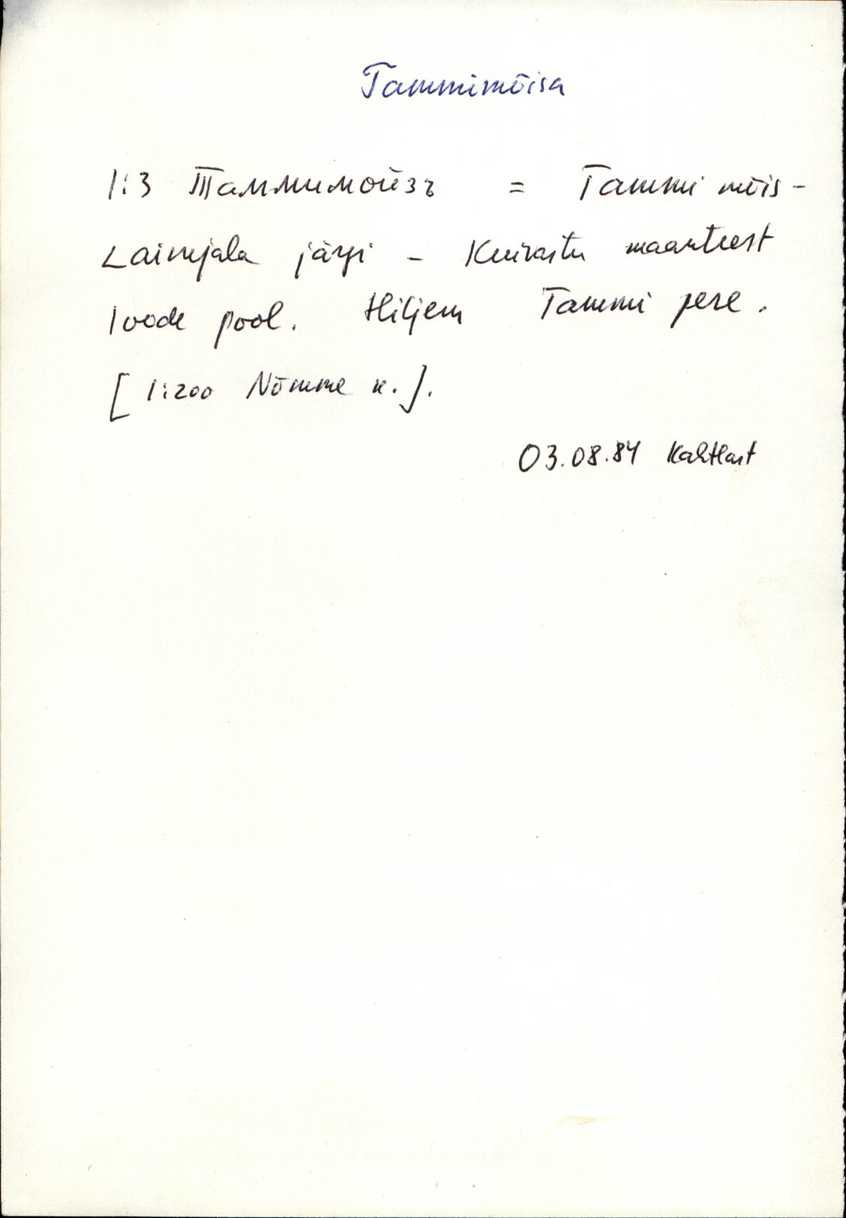 Tammimõisa
1:3 Таммимойзъ = Tammi mõis -
Laimjala järvi - Kuivastu maanteest
loode pool. Hiljem Tammi pere.
[1:200 Nõmme k.].
03.08.84 Kahtlast